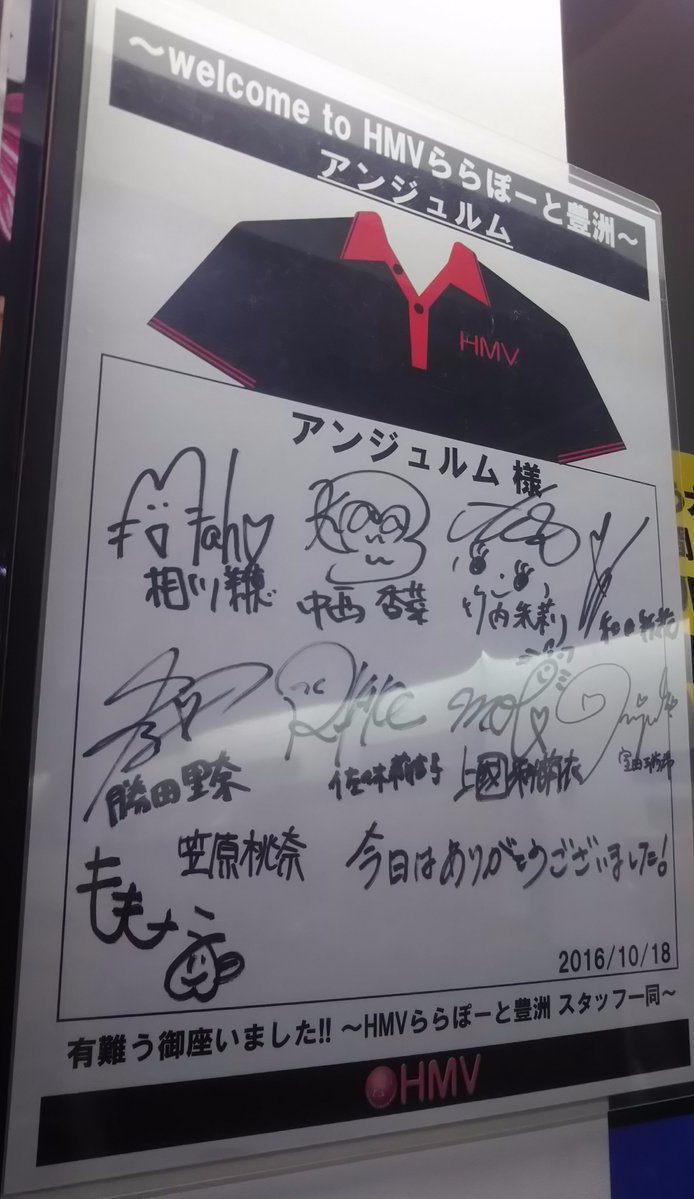 ～welcome to HMVららぽーと豊洲～
アンジュルム
HMV
アンジュルム 様
Maho
相川茉穂 中西香菜 竹内朱莉 和田彩花
Rikako
勝田里奈 佐々木莉佳子 上國料萌衣 室田瑞希
笠原桃奈 今日はありがとうございました!
ももナ
2016/10/18
有難う御座いました!! ～HMVららぽーと豊洲 スタッフ一同～
HMV